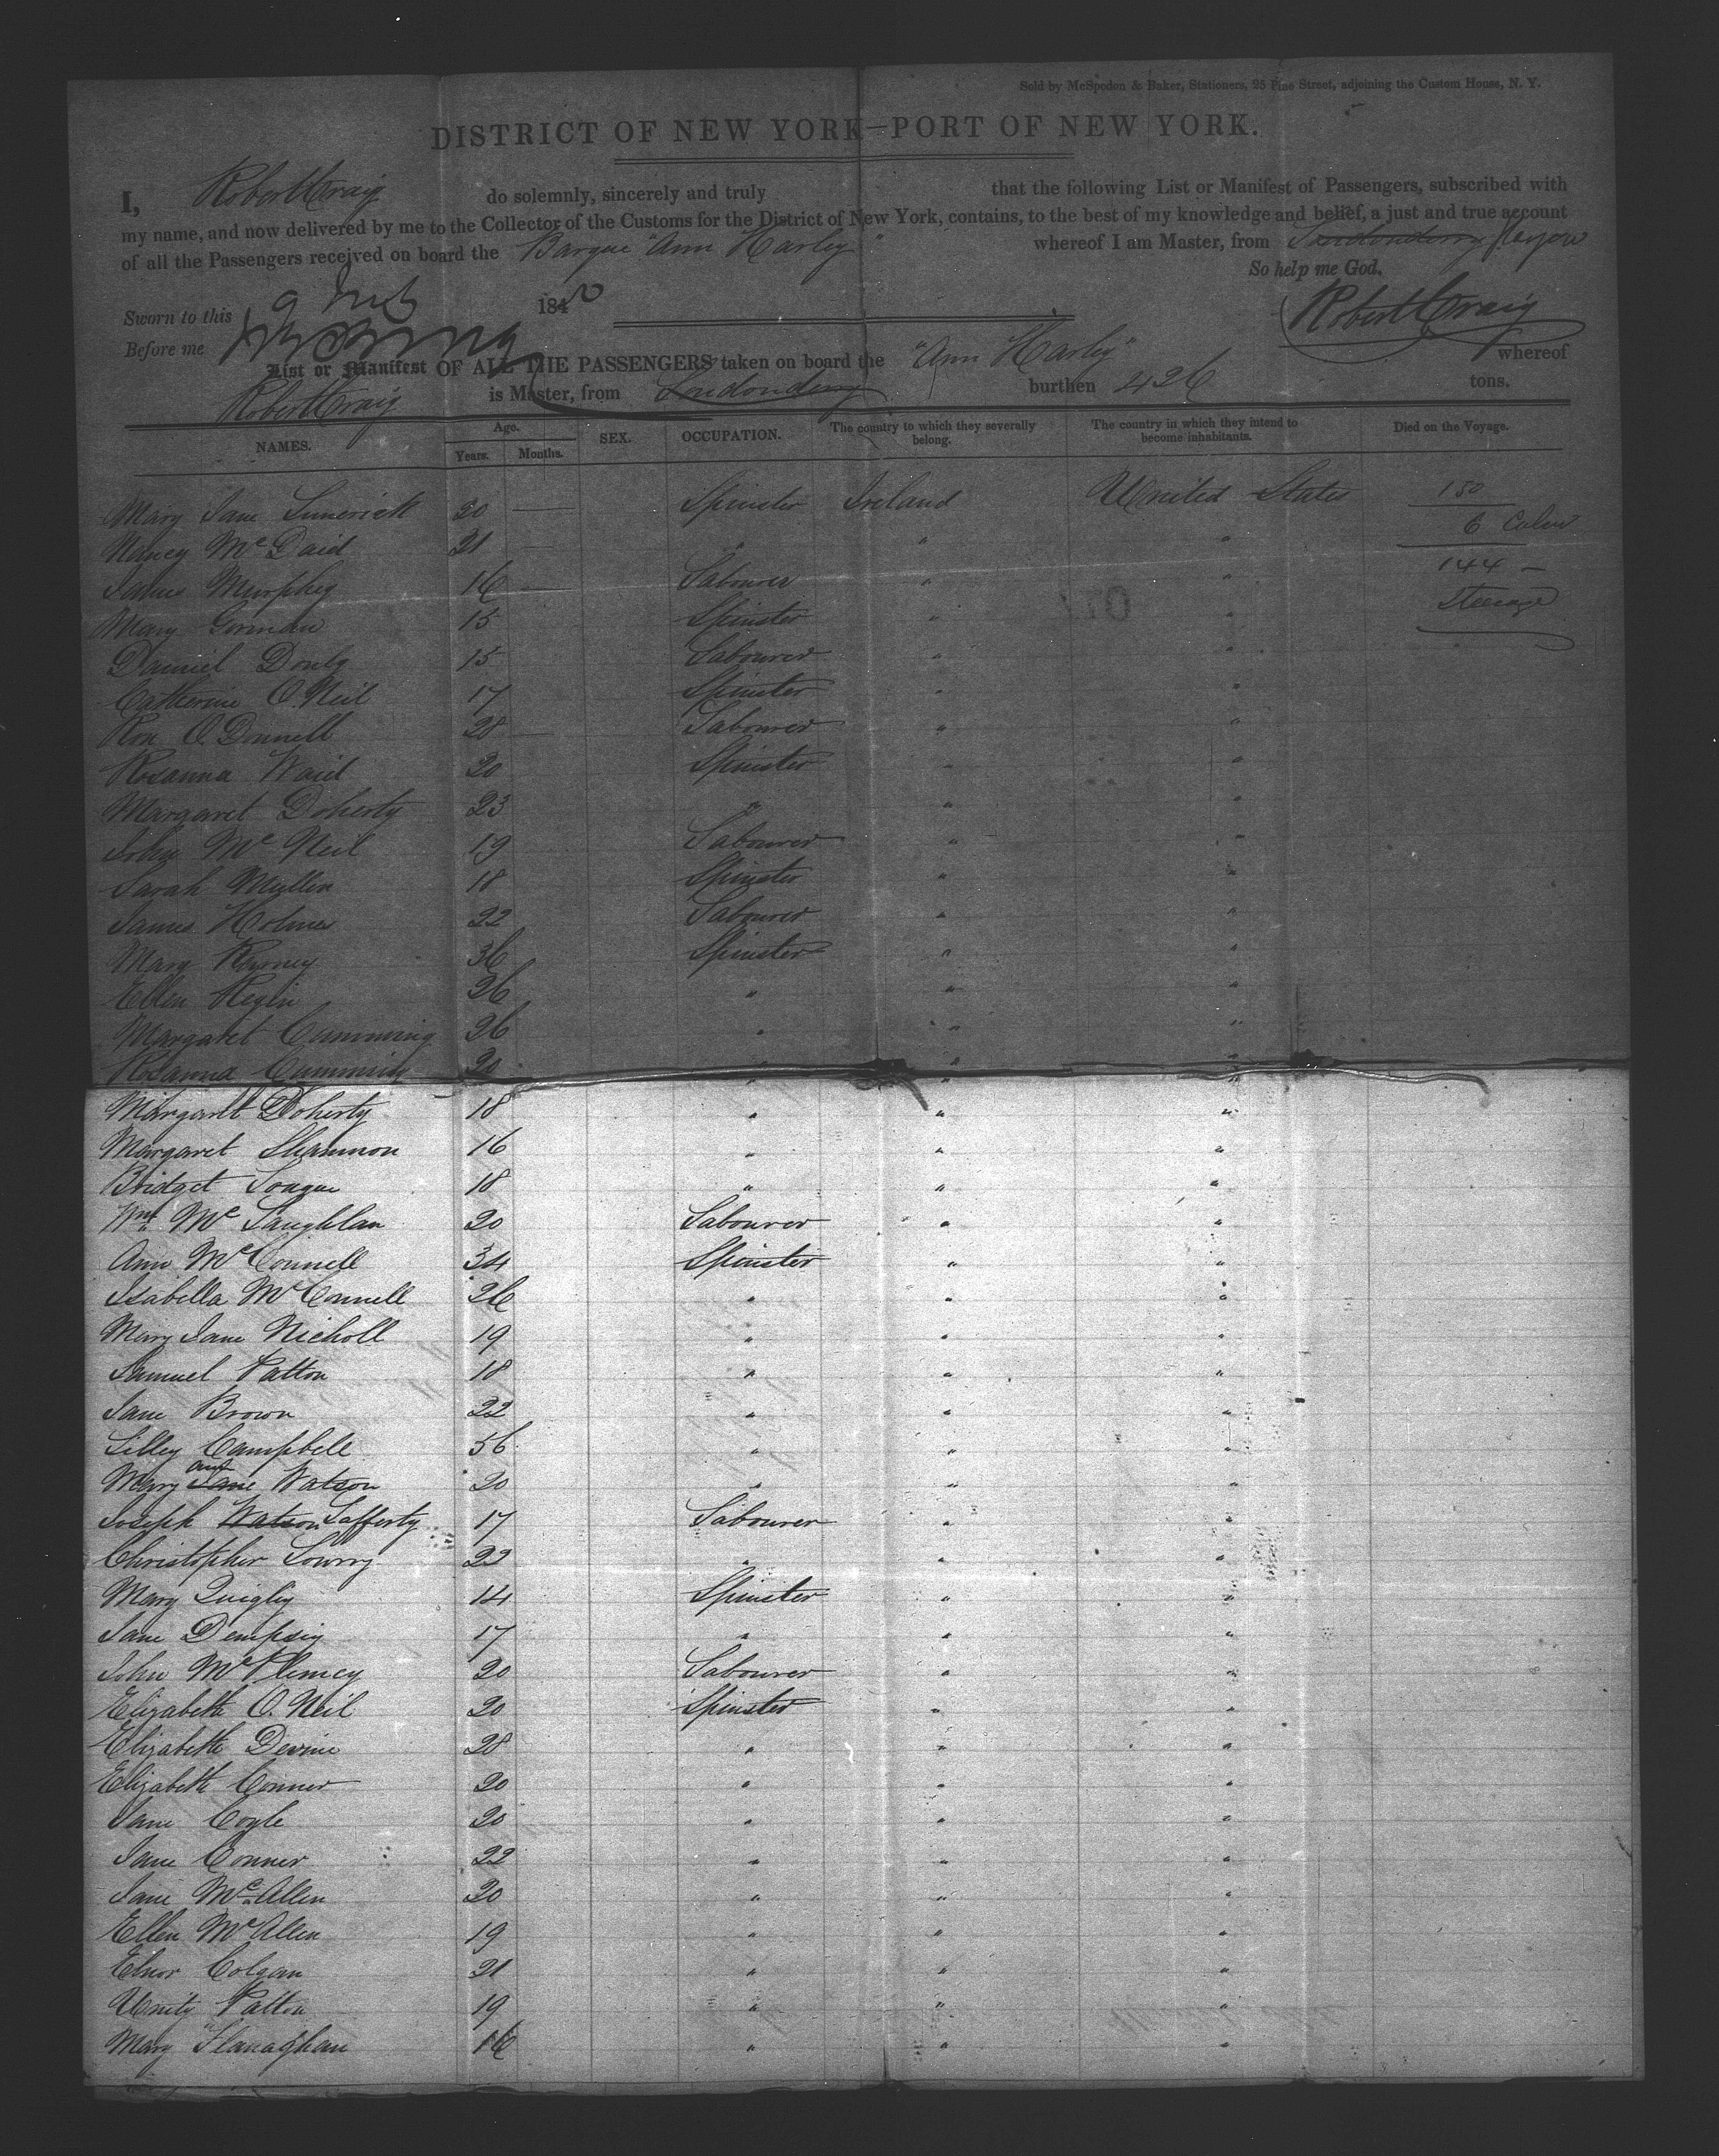 Sold by McSpedon & Baker, Stationers, 25 Pine Street, adjoining the Custom House, N. Y.
DISTRICT OF NEW YORK—PORT OF NEW YORK.
I, Robert Craig do solemnly, sincerely and truly that the following List or Manifest of Passengers, subscribed with
my name, and now delivered by me to the Collector of the Customs for the District of New York, contains, to the best of my knowledge and belief, a just and true account
of all the Passengers received on board the Barque "Ann Harley" whereof I am Master, from Londonderry
So help me God.
Sworn to this 9 184
Robert Craig
Before me
List or Manifest OF ALL THE PASSENGERS taken on board the "Ann Harley" whereof
Robert Craig is Master, from Londonderry burthen 426 tons.
NAMES. Age. Years. Months. SEX. OCCUPATION. The country to which they severally belong. The country in which they intend to become inhabitants. Died on the Voyage.
Mary Jane Limerick 20 — Spinster Ireland United States 150
Nancy Mc Daid 21 — " " " 6 Cabin
James Murphey 16 — Labourer " " 144 –
Mary Gorman 15 Spinster " " Steerage
Daniel 15 Labourer " "
Catherine O. Neil 17 Spinster " "
O. Donnell 28 — Labourer " "
Rosanna Ward 20 Spinster " "
Margaret Doherty 23 " " "
John Mc Neil 19 Labourer " "
Sarah Mullin 18 Spinster " "
James Holmes 22 Labourer " "
Mary 36 Spinster " "
Ellen 26 " " "
Margaret Cumming 26 " " "
Rosanna Cumming 20 " " "
Margaret Doherty 18 " " "
Margaret Shannon 16 " " "
Bridget Logue 18 " " "
Wm Mc Laughlan 20 Labourer " "
Ann Mc Connell 34 Spinster " "
Isabella Mc Connell 26 " " "
Mary Jane Nicholl 19 " " "
Samuel Patton 18 " " "
Jane Brown 22 " " "
Lilley Campbell 56 " " "
Mary Jane Watson 20 " " "
Joseph Watson Lafferty 17 Labourer " "
Christopher Lowry 22 " " "
Mary Quigley 14 Spinster " "
Jane Dempsey 17 " " "
John 20 Labourer " "
Elizabeth O. Neil 20 Spinster " "
Elizabeth Devine 28 " " "
Elizabeth Conner 20 " " "
Jane Coyle 20 " " "
Jane Conner 22 " " "
Jane Mc Allen 20 " " "
Ellen Mc Allen 19 " " "
Elnor Colgan 21 " " "
Unity Patton 19 " " "
Mary Flanaghan 16 " " "